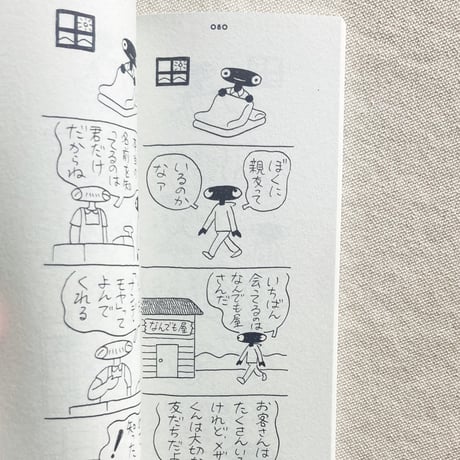 080
ぼくに
親友って
いるのか
なァ
いちばん
会ってるのは
なんでも屋
さんだ
なんでも屋
お客さんは
たくさんい
けれど、メザ
くんは大切
友だちだよ
名前を知
ってるのは
君だけ
だからね
モヤって
よんで
くれる
!